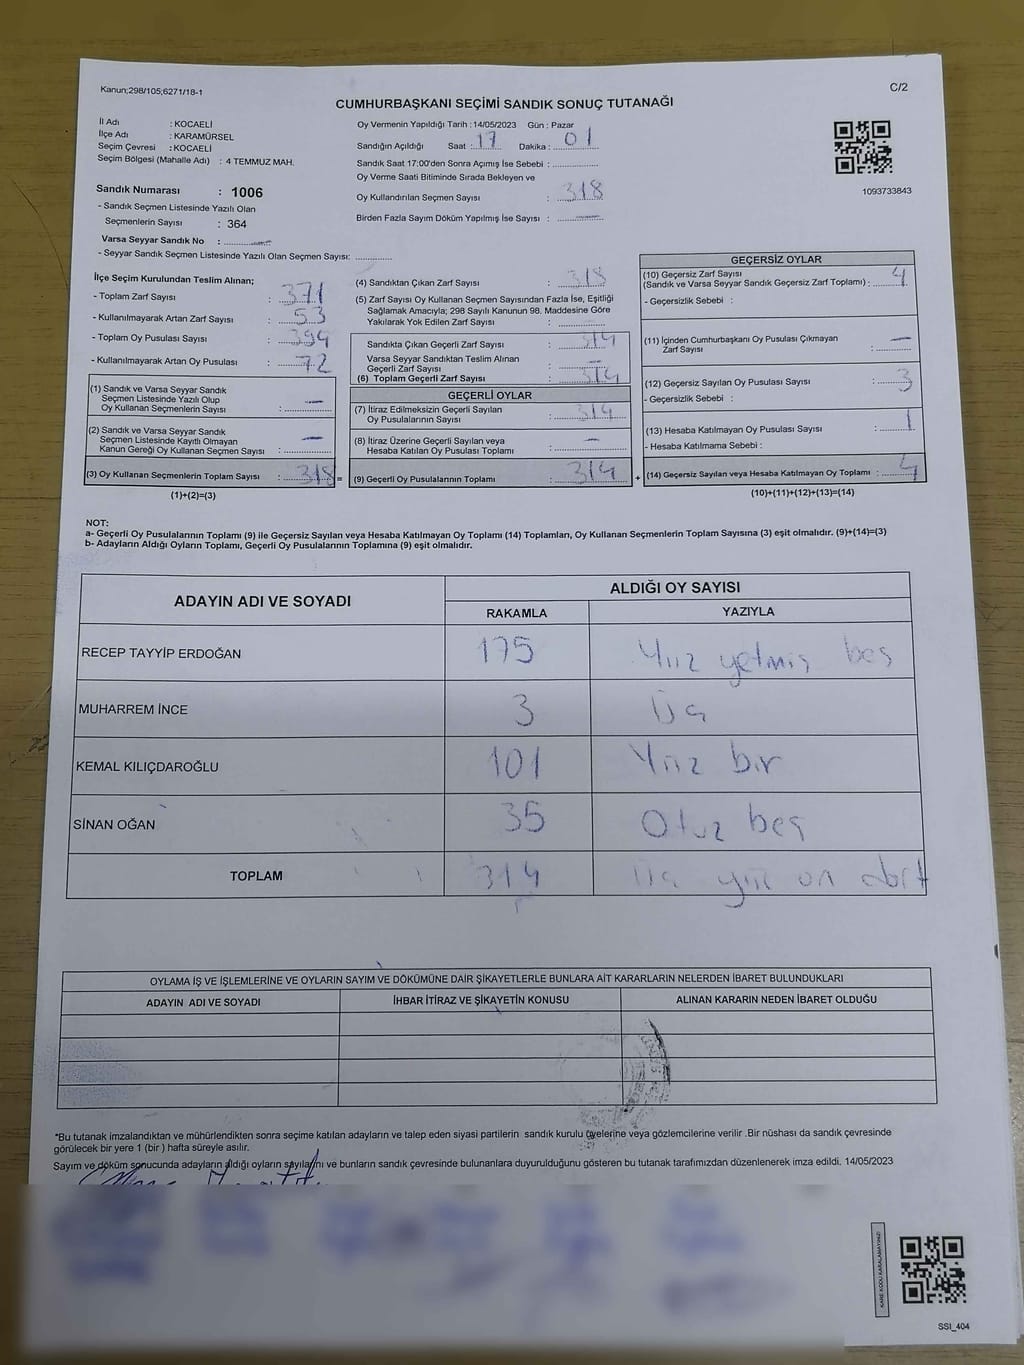 Kanun;298/105,6271/18-1
C/2
CUMHURBAŞKANI SEÇİMİ SANDIK SONUÇ TUTANAĞI
İl Adı : KOCAELİ
İlçe Adı : KARAMÜRSEL
Seçim Çevresi : KOCAELİ
Seçim Bölgesi (Mahalle Adı) : 4 TEMMUZ MAH.
Sandık Numarası : 1006
- Sandık Seçmen Listesinde Yazılı Olan
Seçmenlerin Sayısı : 364
Varsa Seyyar Sandık No : —
- Seyyar Sandık Seçmen Listesinde Yazılı Olan Seçmen Sayısı:
Oy Vermenin Yapıldığı Tarih : 14/05/2023 Gün : Pazar
Sandığın Açıldığı Saat : 17 Dakika : 01
Sandık Saat 17:00'den Sonra Açımış İse Sebebi :
Oy Verme Saati Bitiminde Sırada Bekleyen ve
Oy Kullandırılan Seçmen Sayısı : 318
Birden Fazla Sayım Döküm Yapılmış İse Sayısı : —
1093733843
İlçe Seçim Kurulundan Teslim Alınan;
- Toplam Zarf Sayısı : 371
- Kullanılmayarak Artan Zarf Sayısı : 53
- Toplam Oy Pusulası Sayısı : 394
- Kullanılmayarak Artan Oy Pusulası : 72
(1) Sandık ve Varsa Seyyar Sandık
Seçmen Listesinde Yazılı Olup
Oy Kullanan Seçmenlerin Sayısı : —
(2) Sandık ve Varsa Seyyar Sandık
Seçmen Listesinde Kayıtlı Olmayan
Kanun Gereği Oy Kullanan Seçmen Sayısı : —
(3) Oy Kullanan Seçmenlerin Toplam Sayısı : 318 =
(1)+(2)=(3)
(4) Sandıktan Çıkan Zarf Sayısı : 318
(5) Zarf Sayısı Oy Kullanan Seçmen Sayısından Fazla İse, Eşitliği
Sağlamak Amacıyla; 298 Sayılı Kanunun 98. Maddesine Göre
Yakılarak Yok Edilen Zarf Sayısı :
Sandıkta Çıkan Geçerli Zarf Sayısı : 314
Varsa Seyyar Sandıktan Teslim Alınan
Geçerli Zarf Sayısı : —
(6) Toplam Geçerli Zarf Sayısı : 314
GEÇERLİ OYLAR
(7) İtiraz Edilmeksizin Geçerli Sayılan
Oy Pusulalarının Sayısı : 314
(8) İtiraz Üzerine Geçerli Sayılan veya
Hesaba Katılan Oy Pusulası Toplamı : —
(9) Geçerli Oy Pusulalarının Toplamı : 314 +
GEÇERSİZ OYLAR
(10) Geçersiz Zarf Sayısı
(Sandık ve Varsa Seyyar Sandık Geçersiz Zarf Toplamı) : 4
- Geçersizlik Sebebi :
(11) İçinden Cumhurbaşkanı Oy Pusulası Çıkmayan
Zarf Sayısı : —
(12) Geçersiz Sayılan Oy Pusulası Sayısı : 3
- Geçersizlik Sebebi :
(13) Hesaba Katılmayan Oy Pusulası Sayısı : 1
- Hesaba Katılmama Sebebi :
(14) Geçersiz Sayılan veya Hesaba Katılmayan Oy Toplamı : 4
(10)+(11)+(12)+(13)=(14)
NOT:
a- Geçerli Oy Pusulalarının Toplamı (9) ile Geçersiz Sayılan veya Hesaba Katılmayan Oy Toplamı (14) Toplamları, Oy Kullanan Seçmenlerin Toplam Sayısına (3) eşit olmalıdır. (9)+(14)=(3)
b- Adayların Aldığı Oyların Toplamı, Geçerli Oy Pusulalarının Toplamına (9) eşit olmalıdır.
ADAYIN ADI VE SOYADI
ALDIĞI OY SAYISI
RAKAMLA YAZIYLA
RECEP TAYYİP ERDOĞAN 175 Yüz yetmiş beş
MUHARREM İNCE 3 Üç
KEMAL KILIÇDAROĞLU 101 Yüz bir
SİNAN OĞAN 35 Otuz beş
TOPLAM 314 Üç yüz on dört
OYLAMA İŞ VE İŞLEMLERİNE VE OYLARIN SAYIM VE DÖKÜMÜNE DAİR ŞİKAYETLERLE BUNLARA AİT KARARLARIN NELERDEN İBARET BULUNDUKLARI
ADAYIN ADI VE SOYADI İHBAR İTİRAZ VE ŞİKAYETİN KONUSU ALINAN KARARIN NEDEN İBARET OLDUĞU
*Bu tutanak imzalandıktan ve mühürlendikten sonra seçime katılan adayların ve talep eden siyasi partilerin sandık kurulu üyelerine veya gözlemcilerine verilir .Bir nüshası da sandık çevresinde
görülecek bir yere 1 (bir ) hafta süreyle asılır.
Sayım ve döküm sonucunda adayların aldığı oyların sayılarını ve bunların sandık çevresinde bulunanlara duyurulduğunu gösteren bu tutanak tarafımızdan düzenlenerek imza edildi. 14/05/2023
KARE KODU KARALAMAYINIZ!
SSI_404